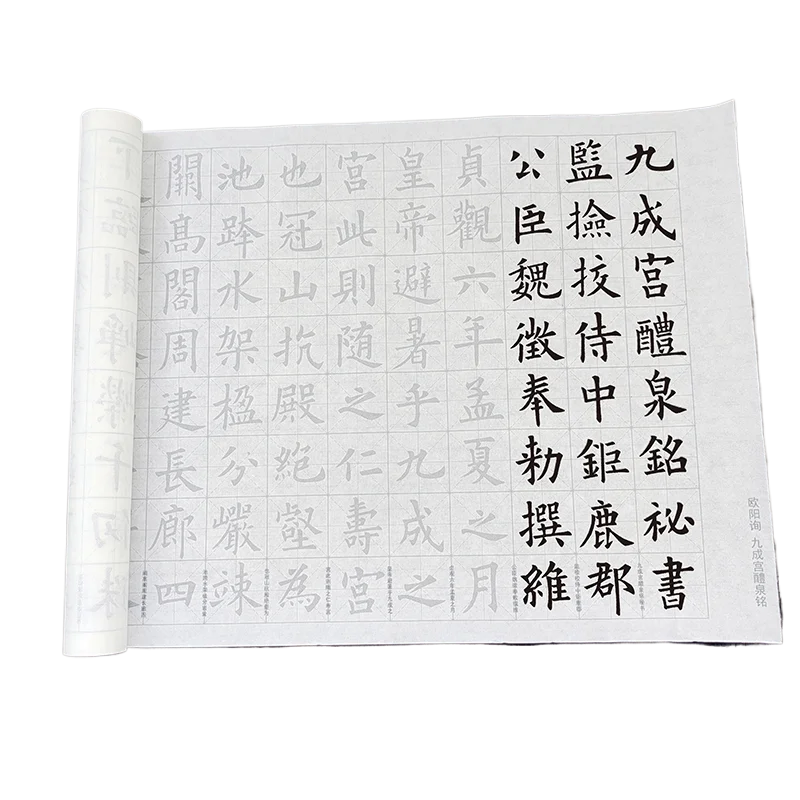 欧阳询 九成宫醴泉铭
九成宮醴泉銘祕書
監撿挍侍中鉅鹿郡
公臣魏徵奉勑撰維
貞觀六年孟夏之月
皇帝避暑乎九成之
宮此則随之仁壽宮
也冠山抗殿絕壑為
池跨水架楹分巖竦
闕髙閣周建長廊四